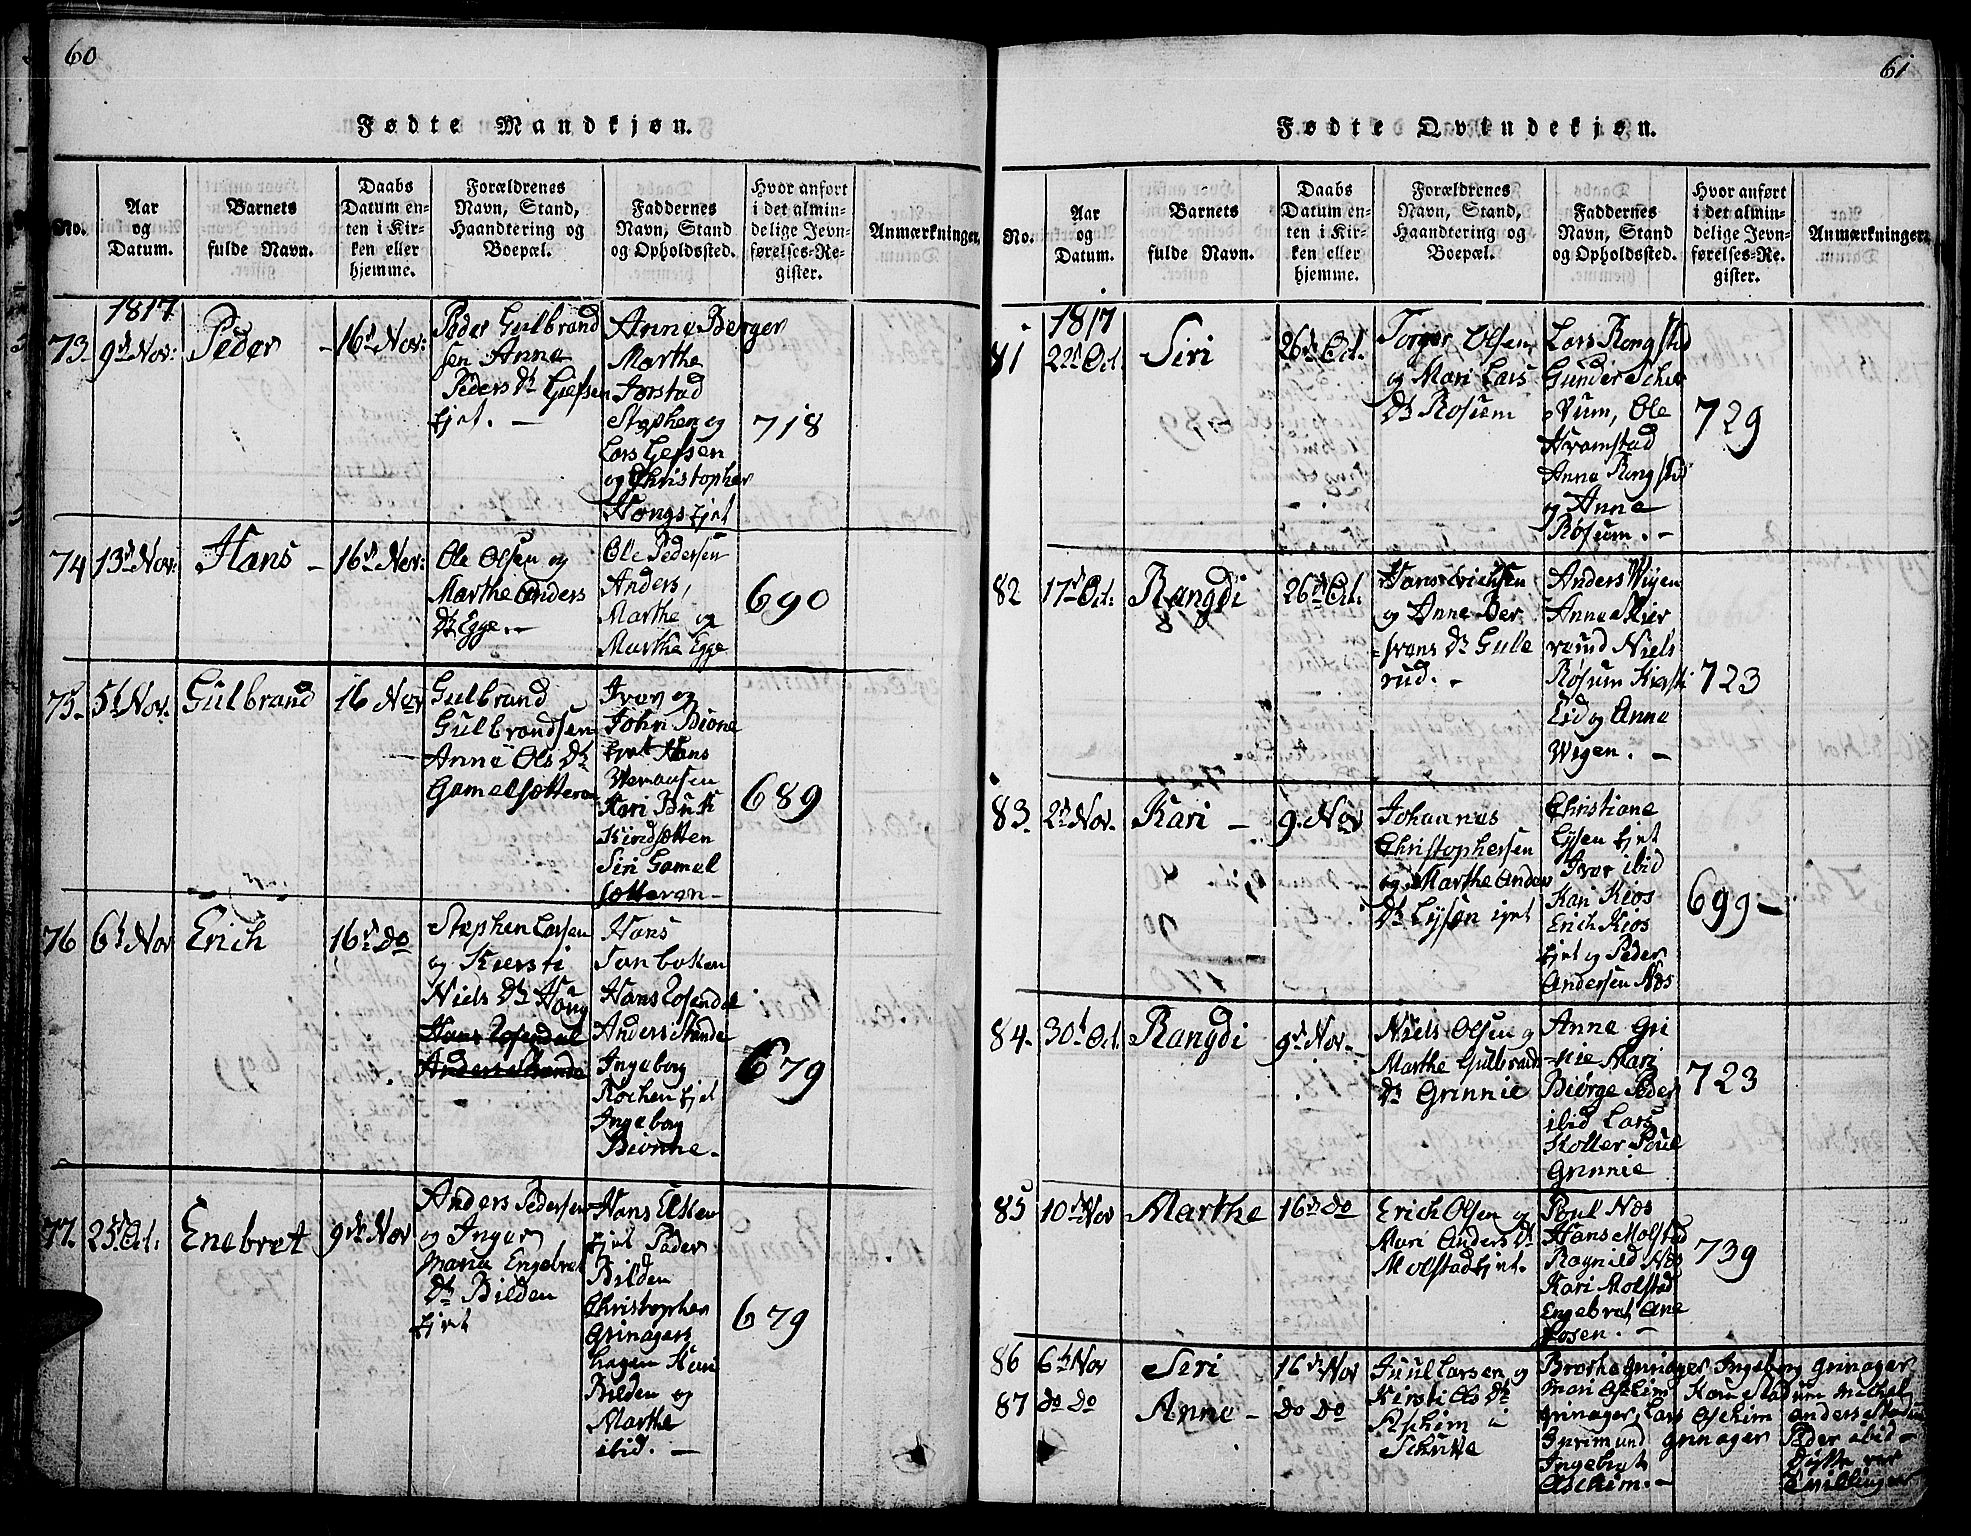 60
Fødte Mandkjøn.
No.
Aar
og
Datum.
Barnets
fulde Navn.
Daabs
Datum en-
ten i Kir-
ken eller
hjemme.
Forældrenes
Navn, Stand,
Haandtering og
Boepæl.
Faddernes
Navn, Stand
og Opholdssted.
Hvor anført
i det almin-
delige Jevn-
førelses-Re-
gister.
Anmærkninger.
1817
73.
9d Nov:
Peder
16d Nov:
Peder Gulbrand
sen Anne
Peders Dr
Ejet.
Anne Berger
Marthe
Jorstad
Stephen og
Lars
og Christopher
Hongs Ejet
718
74
13d Nov:
Hans
16d Nov:
Ole Olsen og
Marthe Anders
Dr Egge.
Ole Pedersen
Anders,
Marthe og
Marthe Egge
690
75.
5t Nov.
Gulbrand
16 Nov
Gulbrand
Gulbrandsen
Anne Ols Dr
Gamelsætteren
Iver og
John Bione
Ejet Hans
Kari
Siri Gamel
sætteren
689
76
6t Nov
Erich
16d do
Stephen Larsen
og Kiersti
Niels Dr Hong
Hans Losendal
Anders Strande
Hans
Hans Losendal
Anders Strande
Ingeborg
Ejet
Ingeborg
Bionne.
679
77.
25d Oct:
Enebret
9de Nov
Anders Pedersen
og Inger
Maria Engebret
Dr Bilden
Ejet
Hans
Ejet Peder
Bilden
Christopher
Grinagers
hagen Kari
Bilden og
Marthe
ibid.
679
61
Fødte Qvindekjøn.
No.
Aar
og
Datum.
Barnets
fulde Navn.
Daabs
Datum en-
ten i Kir-
ken eller
hjemme.
Forældrenes
Navn, Stand,
Haandtering og
Boepæl.
Faddernes
Navn, Stand
og Opholdssted.
Hvor anført
i det almin-
delige Jevn-
førelses-Re-
gister.
Anmærkninger.
1817
81
22d Oct.
Siri
26d Oct.
Torger Olsen
og Mari Lars
Dr Rosum
Lars Rongsted
Gunder
Ole
Hramstad
Anne Rongsted
og Anne
Røsum.
729
82
17d Oct:
Rangdi
26d Oct.
Hans Erichsen
og Anne
Dr Gule
rud.
Anders Wigen
Anne
Niels
Røsum Kiersti
Eid og Anne
Wigen.
723
83.
2d Nov.
Kari
9. Nov
Johannes
Christophersen
og Marthe Anders
Dr Lysen Ejet
Christiane
Lysen Ejet
Iver ibid
Kari Kios
Erich Kios
Ejet og Peder
Andersen Næs
699
84.
30t Oct.
Rangdi
9d Nov.
Niels Olsen og
Marthe Gulbrands
Dr Grinnie
Anne Gri
nie Mari
Biørge Peder
ibid Lars
Koller Poul
Grinnie
723
85
10d Nov
Marthe
16d do
Erich Olsen og
Mari Anders Dr
Molstad Ejet.
Poul Næs
Hans Molstad
Ragnild Næs
Kari Molstad
Engebret
739
86
6t Nov
Siri
16de Nov
Juul Larsen og
87
do do
Anne
do do
Kirsti Ols Dr
Aschim
Grinager Ingeborg Grinager
Mari Aschim
Grinager Lars Aschim Anders
Grinager Peder ibid
Ingebret
Aschim.
Døtte var
Tvillinger